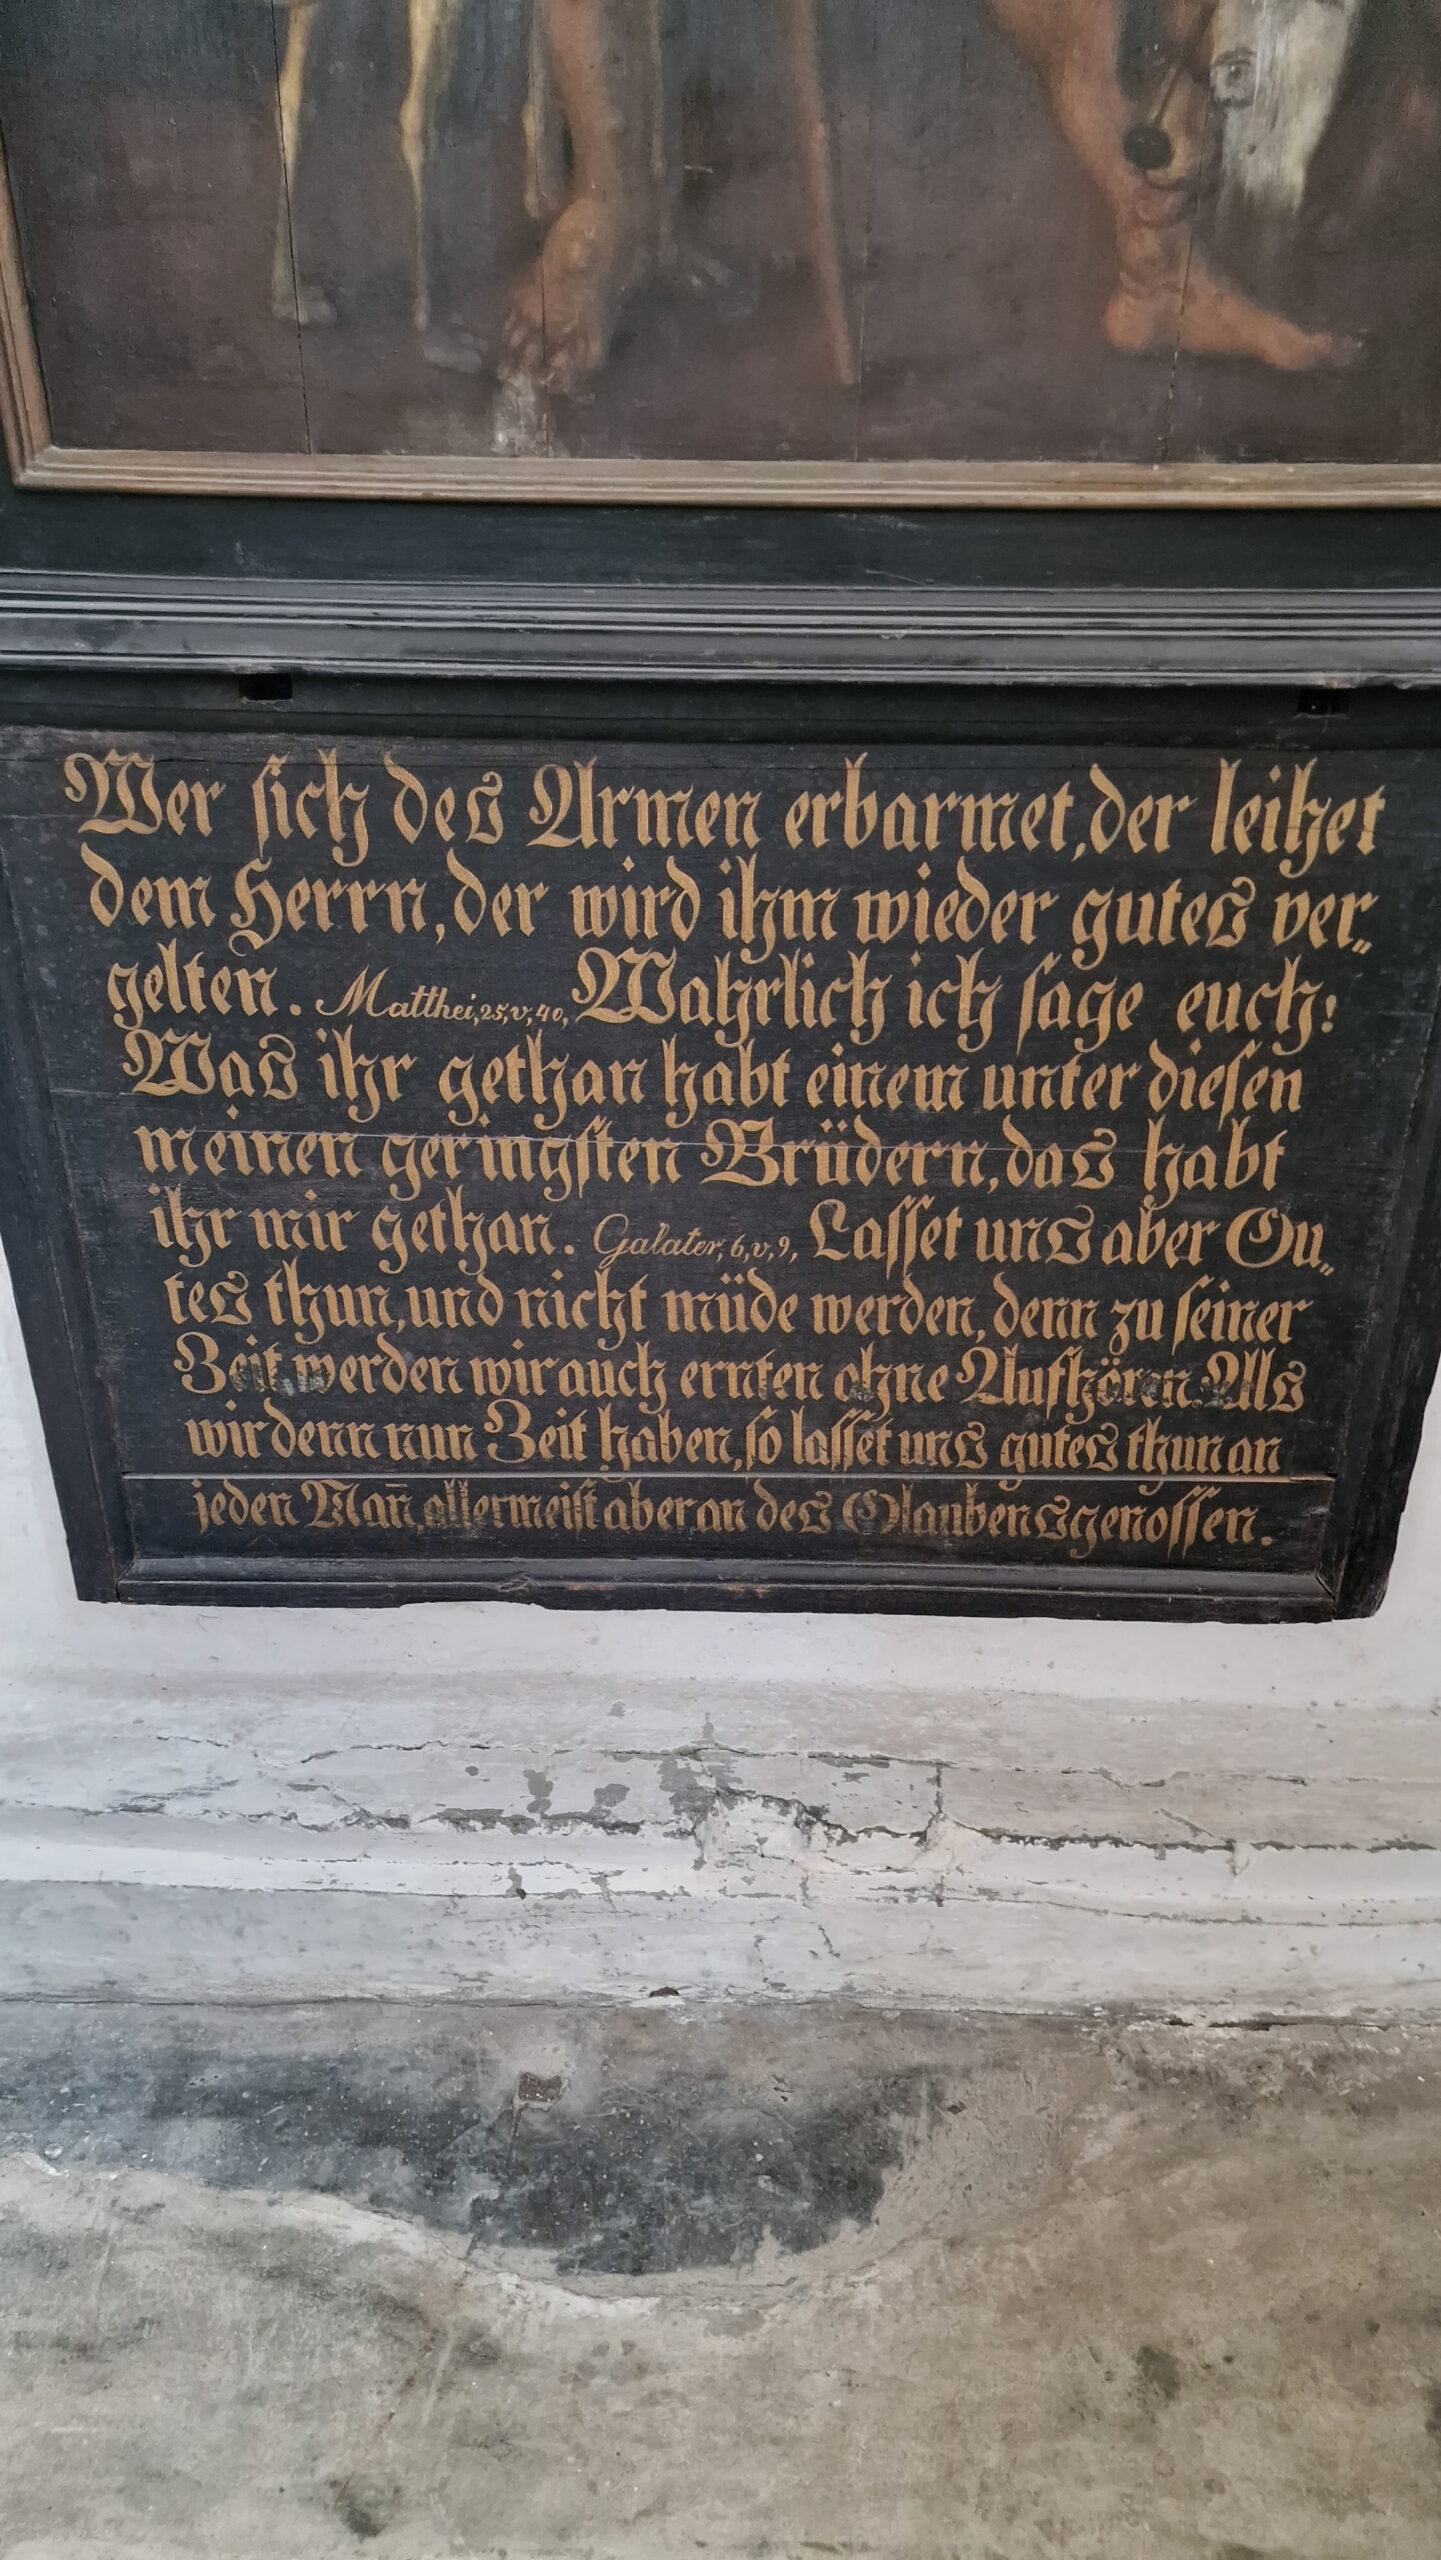 Wer sich des Armen erbarmet, der leihet
dem Herrn, der wird ihm wieder gutes ver„
gelten. Matthei, 25, v, 40, Wahrlich ich sage euch:
Was ihr gethan habt einem unter diesen
meinen geringsten Brüdern, das habt
ihr mir gethan. Galater, 6, v, 9, Lasset uns aber Gu„
tes thun, und nicht müde werden, denn zu seiner
Zeit werden wir auch ernten ohne Aufhören. Als
wir denn nun Zeit haben, so lasset uns gutes thun an
jeden Man̄, allermeist aber an des Glaubensgenossen.